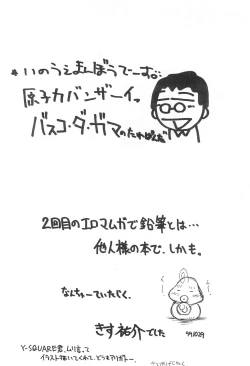 *いのうえまんぼうでーす。
原子力バンザーイ。
バスコ・ダ・ガマの
2回目のエロマムガで鉛筆とは…
他人様の本で、しかも。
なんちゅーていたらく。
きす祐介でした
991029
Y-SQUARE君、
イラスト描いてくれて、どうもアリガトー。